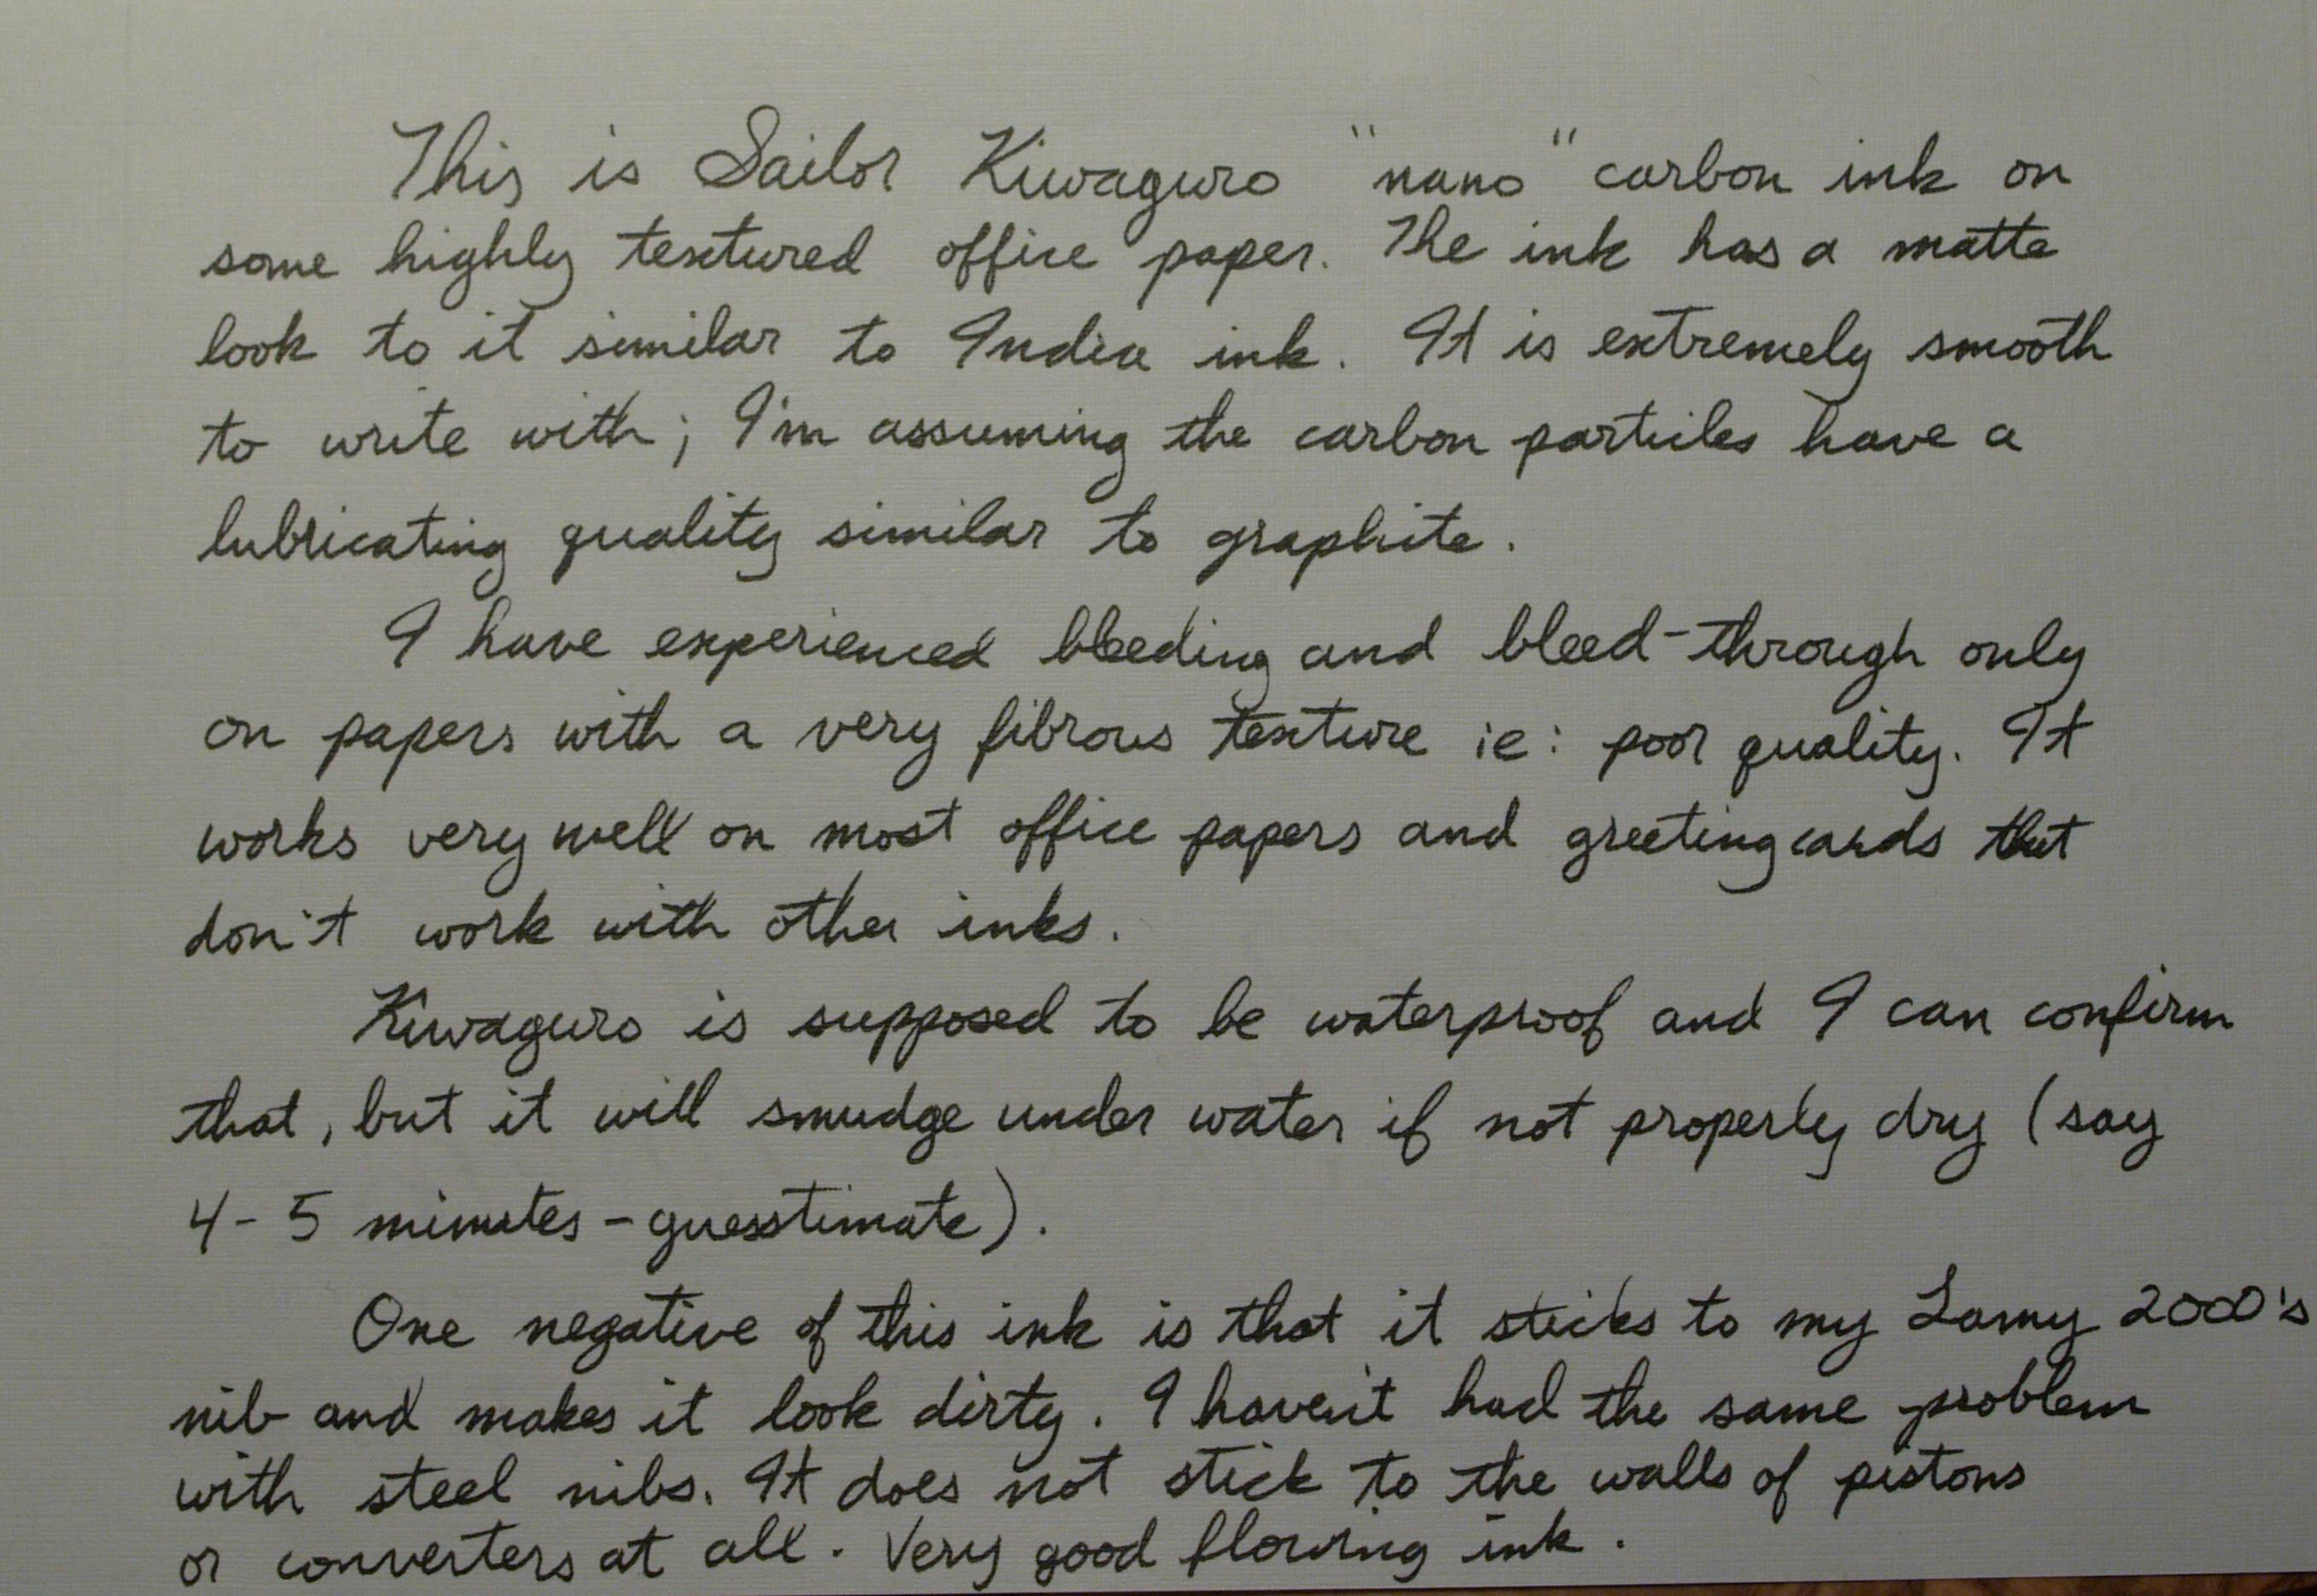 This is Sailor Kiwaguro "nano" carbon ink on
some highly textured office paper. The ink has a matte
look to it similar to India ink. It is extremely smooth
to write with; I'm assuming the carbon particles have a
lubricating quality similar to graphite.
I have experienced bleeding and bleed-through only
on papers with a very fibrous texture ie: poor quality. It
works very well on most office papers and greeting cards that
don't work with other inks.
Kiwaguro is supposed to be waterproof and I can confirm
that, but it will smudge under water if not properly dry (say
4-5 minutes - guesstimate).
One negative of this ink is that it sticks to my Lamy 2000's
nib and makes it look dirty. I haven't had the same problem
with steel nibs. It does not stick to the walls of pistons
or converters at all. Very good flowing ink.